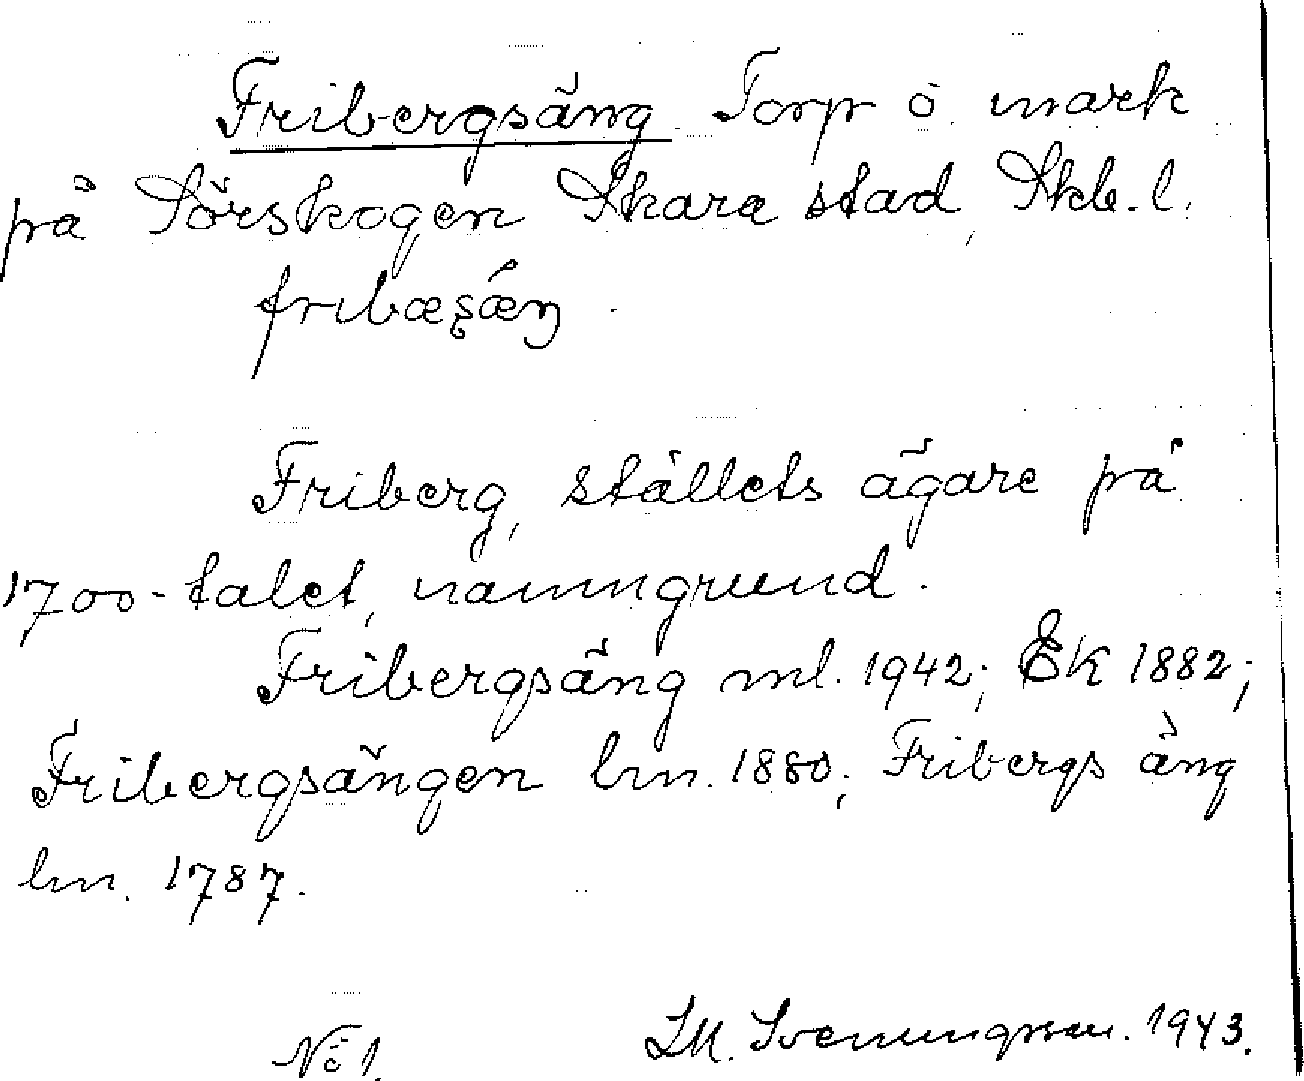 Fribergsäng Torp o. mark
på Sörskogen Skara stad, Skb. l.
fribæʂæŋ.
Friberg, ställets ägare på
1700-talet, namngrund.
Fribergsäng ml. 1942; EK 1882;
Fribergsängen lm. 1880; Fribergs äng
lm. 1787.
Svenungsson. 1943.